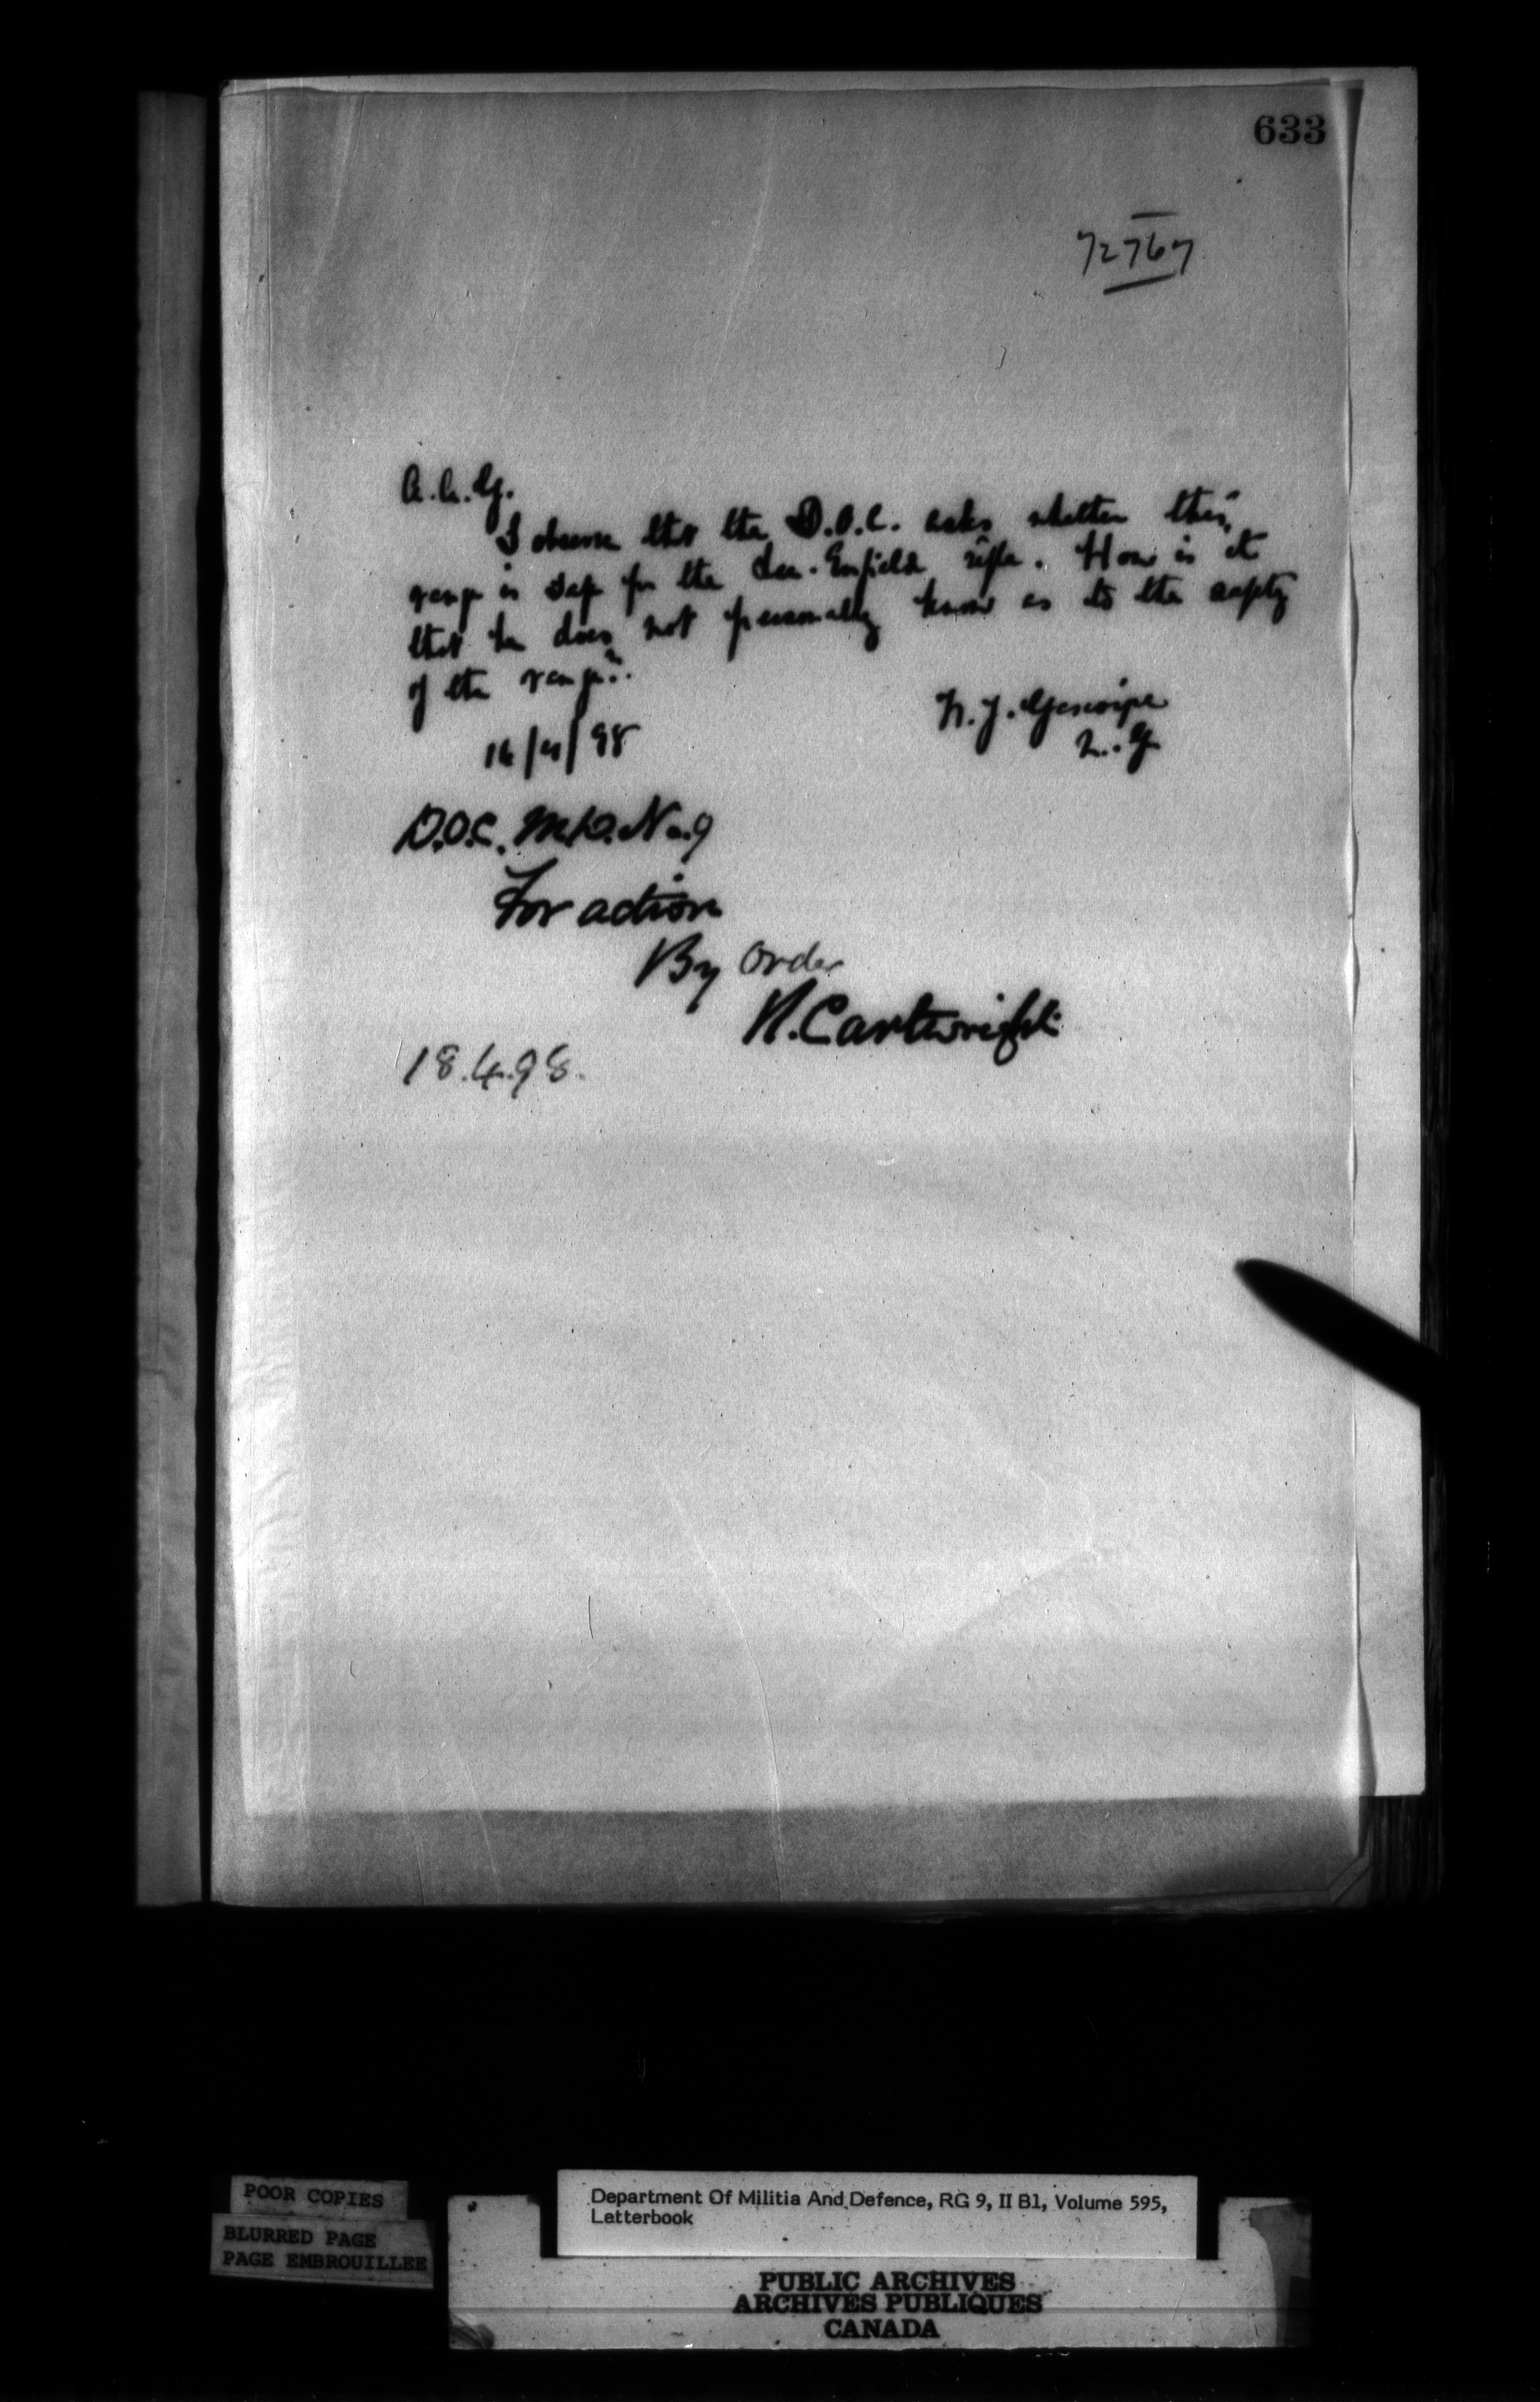 633
72767
A.A.G.
I observe that the D.O.C. asks whether this
range is safe for the Lee-Enfield rifle. How is it
that he does not personally know as to the safety
of the range?
16/4/98
D.O.C. M.D. No. 9
For action
By order
Cartwright
18.4.98.
POOR COPIES
BLURRED PAGE
PAGE EMBROUILLEE
Department Of Militia And Defence, RG 9, II B1, Volume 595,
Letterbook
PUBLIC ARCHIVES
ARCHIVES PUBLIQUES
CANADA